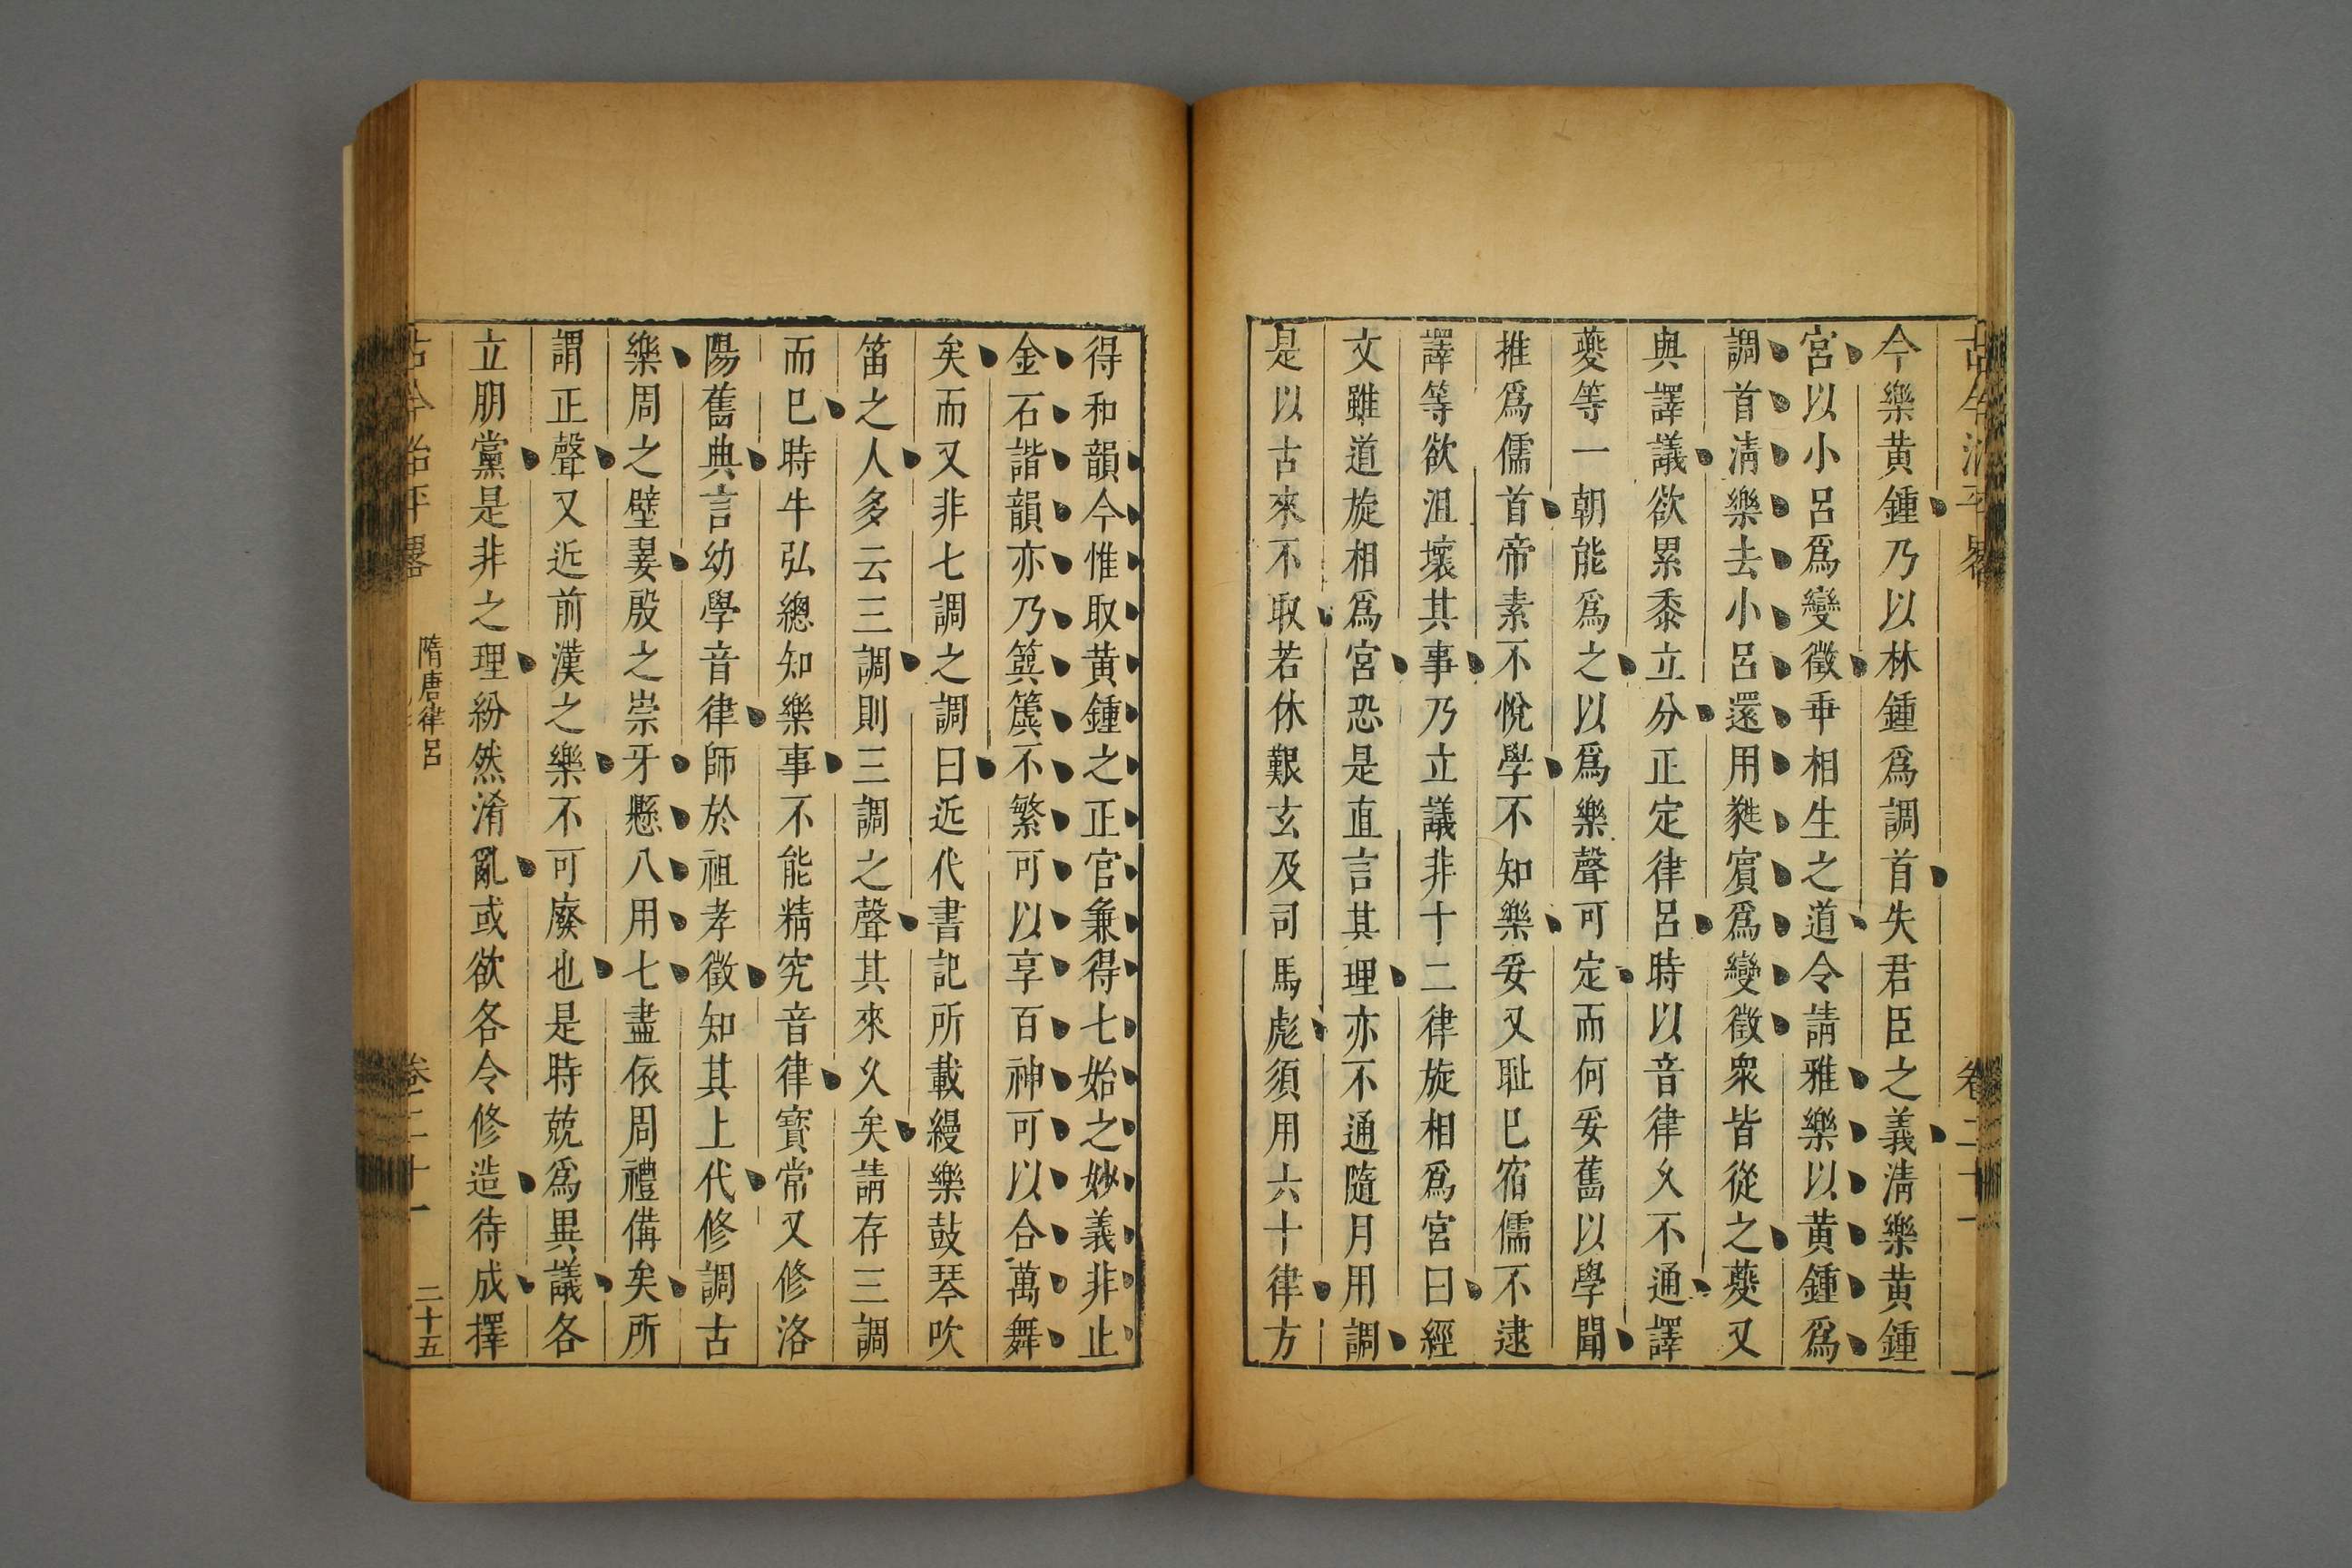 古今治平畧 卷二十一
今樂黃鍾乃以林鍾爲調首失君臣之義淸樂黃鍾
宮以小呂爲變徵乖相生之道今請雅樂以黃鍾爲
調首淸樂去小呂還用蕤賔爲變徵衆皆從之夔又
與譯議欲累黍立分正定律呂時以音律久不通譯
夔等一朝能爲之以爲樂聲可定而何妥舊以學聞
推爲儒首帝素不悅學不知樂妥又耻巳宿儒不逮
譯等欲沮壞其事乃立議非十二律旋相爲宮曰經
文雖道旋相爲宮恐是直言其理亦不通隨月用調
是以古來不取若休艱玄及司馬彪須用六十律方
得和韻今惟取黃鍾之正官兼得七始之妙義非止
金石諧韻亦乃簨簴不繁可以享百神可以合萬舞
矣而又非七調之調曰近代書記所載縵樂鼓琴吹
笛之人多云三調則三調之聲其來久矣請存三調
而巳時牛弘總知樂事不能精究音律寶常又修洛
陽舊典言幼學音律師於祖孝徵知其上代修調古
樂周之壁翣殷之崇牙懸八用七盡依周禮備矣所
謂正聲又近前漢之樂不可廢也是時兢爲異議各
立朋黨是非之理紛然淆亂或欲各令修造待成擇
古今治平畧 隋唐律呂 卷二十一 二十五